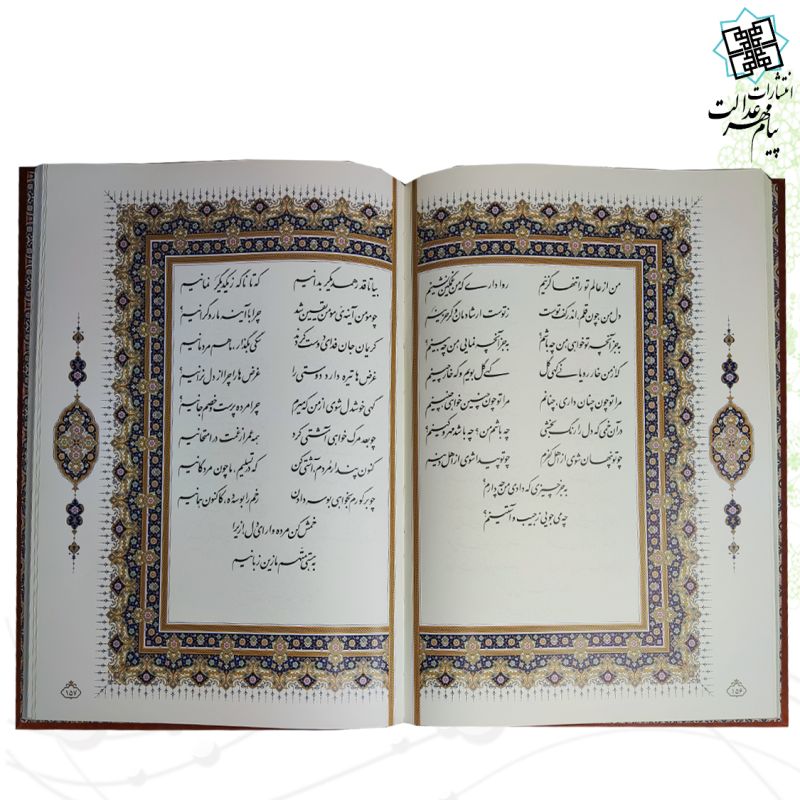 انتشارات
پیام مهر عدالت
من از عالم تو را تنها گزینم روا داری که من غمگین نشینم
دل من چون قلم، اندر کف توست ز توست ار شادمان و گر حزینم
به جز آنچه تو خواهی من چه باشم؟ به جز آنچه نمایی من چه بینم؟
گه از من خار رویانی گهی گل گهی گل بویم و گه خار چینم
مرا تو چون چنان داری، چنانم مرا تو چون چنین خواهی، چنینم
در آن خمی که دل را رنگ بخشی چه باشم من؟ چه باشد مهر و کینم؟
چو تو پنهان شوی از اهل کفرم چو تو پیدا شوی از اهل دینم
به جز چیزی که دادی من چه دارم؟
چه می جویی ز جیب و آستینم؟
۱۵۶
بیا تا قدر همدیگر بدانیم که تا ناگه ز یکدیگر نمانیم
چو مؤمن آینه‌ی مؤمن یقین شد چرا با آینه ما رو گرانیم؟
کریمان جان فدای دوست کردند سگی بگذار، ما هم مردمانیم
غرض ها تیره دارد دوستی را غرض ها را چرا از دل نرانیم؟
گهی خوشدل شوی از من که میرم چرا مرده پرست و خصم جانیم؟
چو بعد مرگ خواهی آشتی کرد همه عمر از غمت در امتحانیم
کنون پندار مُردم، آشتی کن که در تسلیم، ما چون مردگانیم
چو بر گورم بخواهی بوسه دادن رخم را بوسه ده، کاکنون همانیم
خمش کن مرده وار ای دل، ازیرا
به هستی متهم ما زین زبانیم
۱۵۷